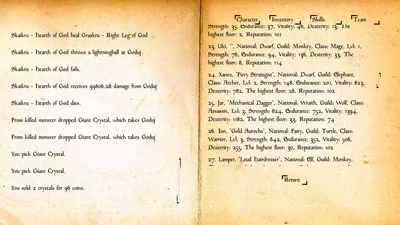 Skakru - Hearth of God heal Graakru - Right Leg of God
Skakru - Hearth of God throws a lightningball at Godaj
Skakru - Hearth of God falls.
Skakru - Hearth of God receives 99806.28 damage from Godaj
Skakru - Hearth of God dies.
From killed monster dropped Giant Crystal, which takes Godaj
From killed monster dropped Giant Crystal, which takes Godaj
You pick Giant Crystal.
You pick Giant Crystal.
You sold 2 crystals for 96 coins.
Character Inventory Skills Team
Strength: 35, Endurance: 37, Vitality: 46, Dexterity: 15, The
highest floor: 2, Reputation: 101
23. Uki, '', National: Dwarf, Guild: Monkey, Class: Mage, Lvl: 1,
Strength: 96, Endurance: 94, Vitality: 136, Dexterity: 33, The
highest floor: 8, Reputation: 114
24. Xanex, 'Fiery Strategist', National: Dwarf, Guild: Elephant,
Class: Archer, Lvl: 2, Strength: 148, Endurance: 201, Vitality: 823,
Dexterity: 782, The highest floor: 28, Reputation: 102
25. Jar, 'Mechanical Dagger', National: Wraith, Guild: Wolf, Class:
Assassin, Lvl: 3, Strength: 624, Endurance: 752, Vitality: 1394,
Dexterity: 1182, The highest floor: 33, Reputation: 74
26. Ion, 'Gold Aurochs', National: Fairy, Guild: Turtle, Class:
Warrior, Lvl: 3, Strength: 642, Endurance: 352, Vitality: 508,
Dexterity: 255, The highest floor: 30, Reputation: 102
27. Lamper, 'Loud hairdresser', National: Elf, Guild: Monkey,
Return